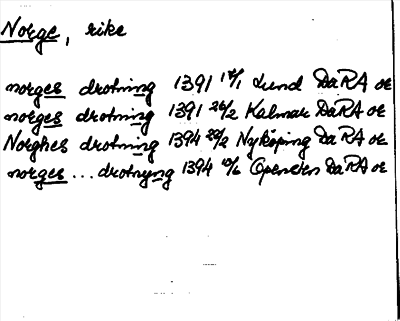 Norge, rike
norges drotning 1391 17/1 Lund DaRA or
norges drotning 1391 26/2 Kalmar DaRA or
Norghes drotning 1394 29/2 Nyköping DaRA or
norges ... drotnyng 1394 10/6 DaRA or